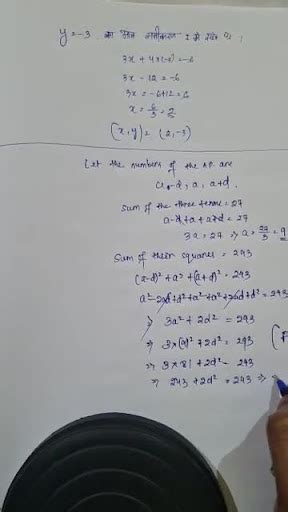 y = -3 का मान समीकरण I में रखने पर
3x + 4x(-3) = -6
3x - 12 = -6
3x = -6+12 = 6
x = 6/3 = 2
(x, y) = (2, -3)
Let the numbers of the A.P. are
a-d, a, a+d.
Sum of the three terms = 27
a-d+a+a+d = 27
3a = 27 ⇒ a = 27/3 = 9
Sum of their squares = 293
(a-d)² + a² + (a+d)² = 293
a² - 2ad + d² + a² + a² + 2ad + d² = 293
⇒ 3a² + 2d² = 293
⇒ 3×(9)² + 2d² = 293
⇒ 3×81 + 2d² = 293
⇒ 243 + 2d² = 293 ⇒